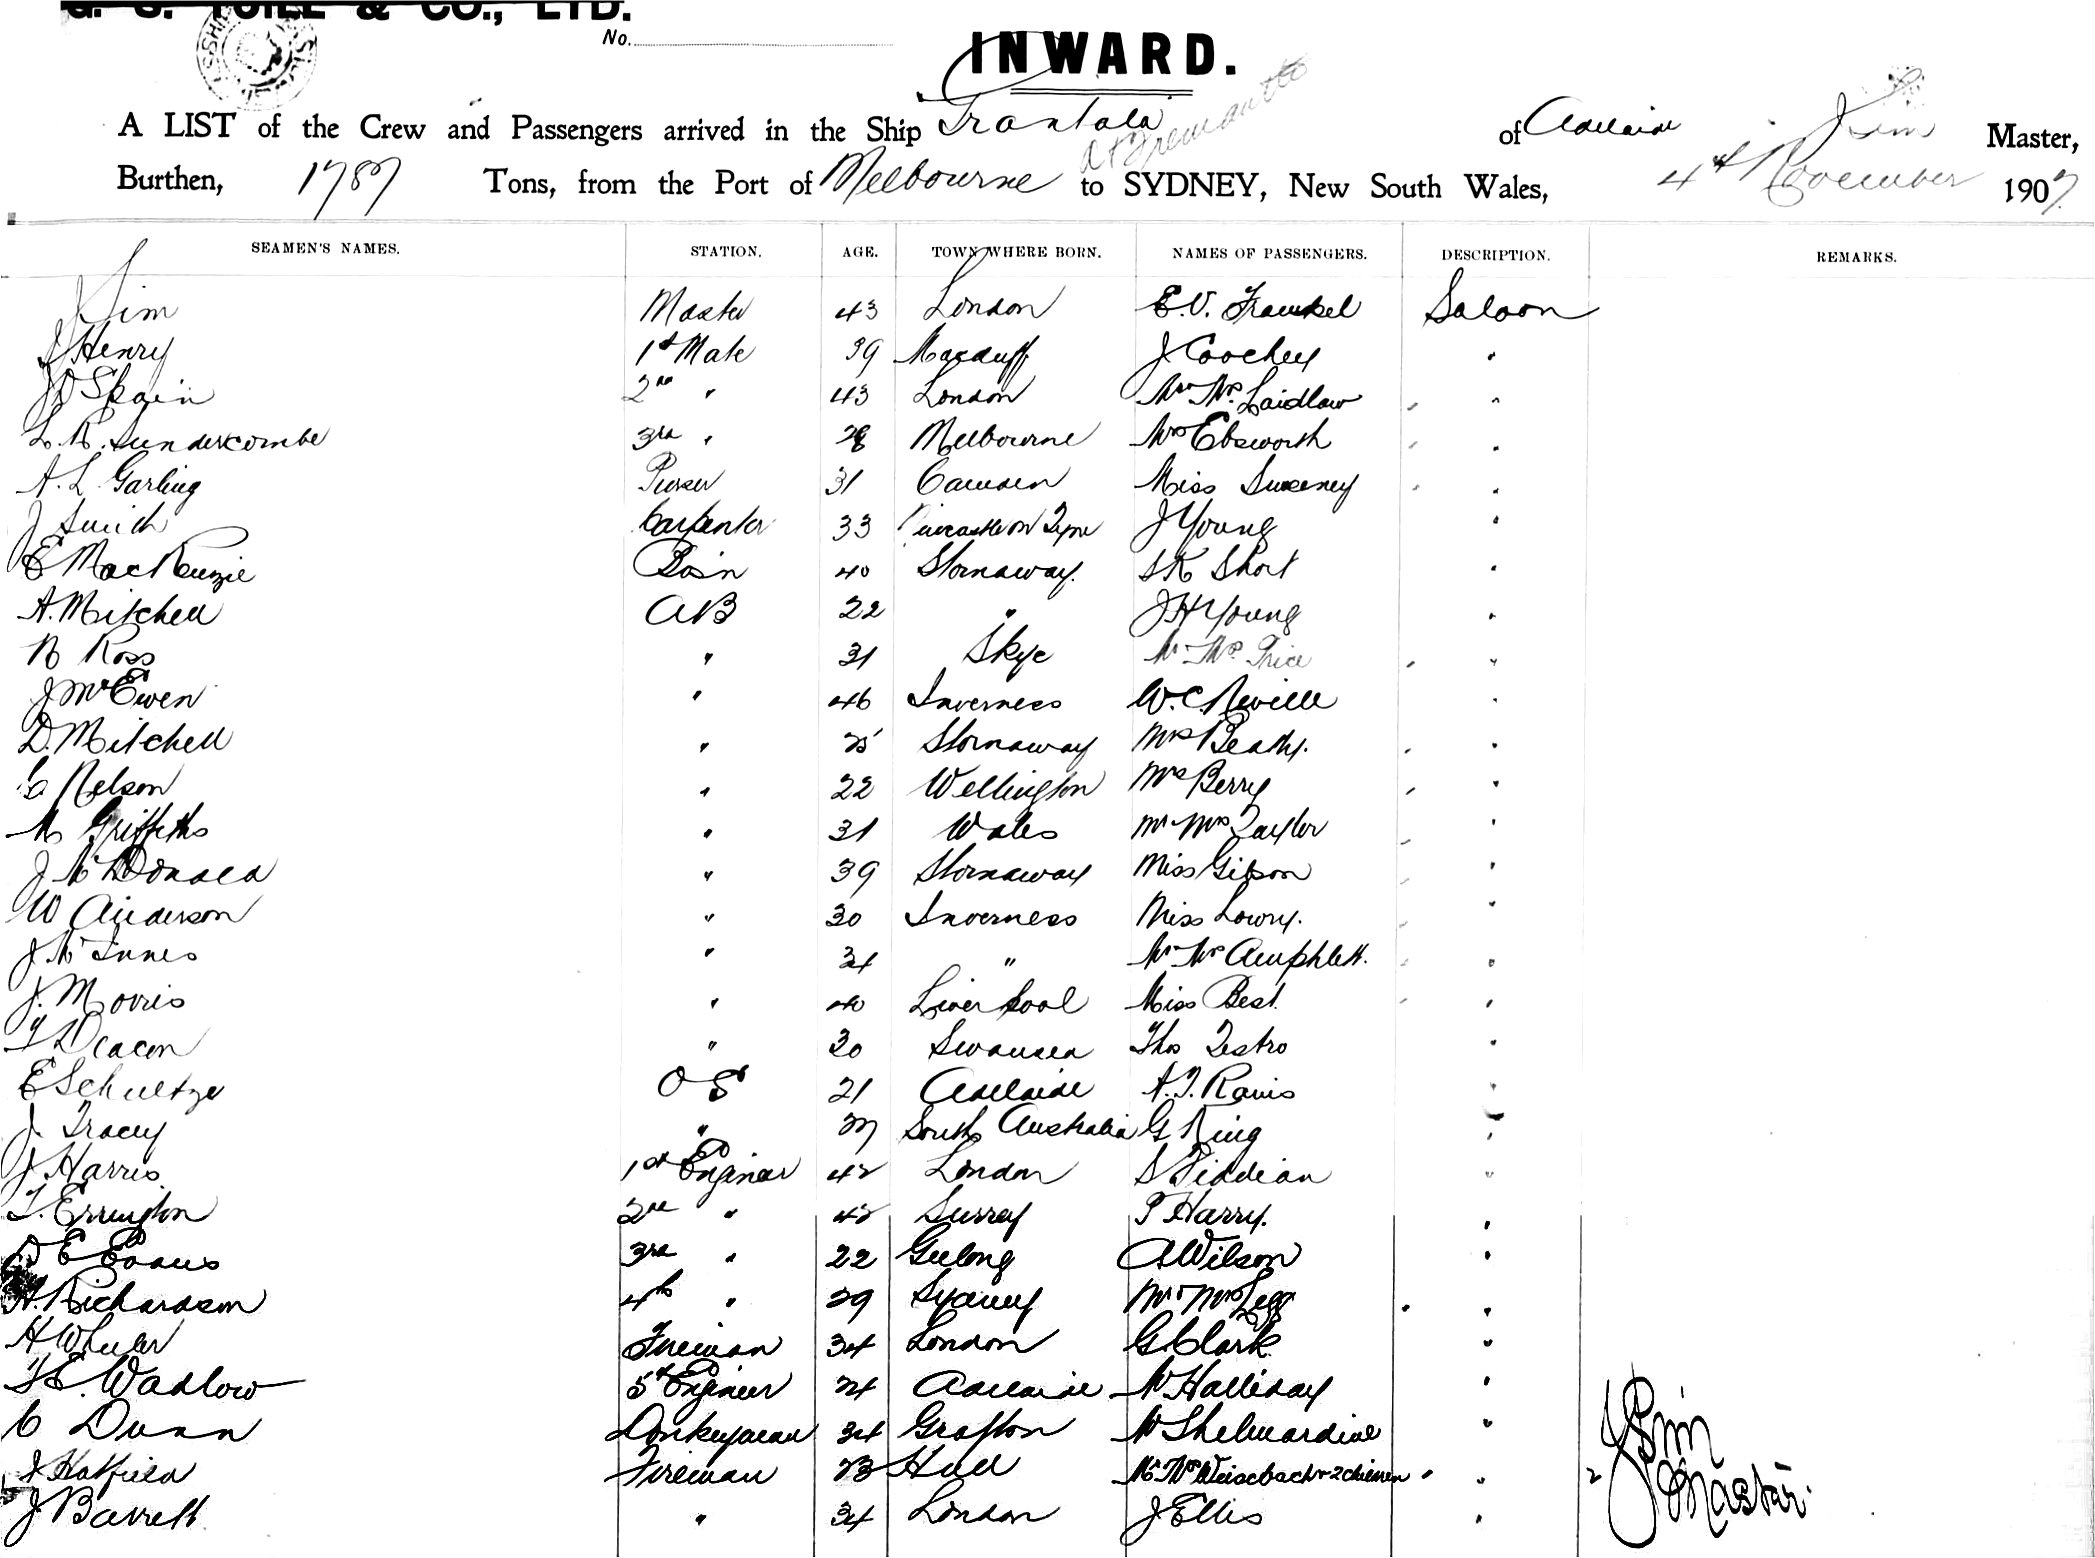 G. S. YUILL & CO., LTD.
No.
INWARD.
A LIST of the Crew and Passengers arrived in the Ship Grantala of Adelaide J Sim Master,
& Fremantle
Burthen, 1787 Tons, from the Port of Melbourne to SYDNEY, New South Wales, 4th November 1907.
SEAMEN'S NAMES. STATION. AGE. TOWN WHERE BORN. NAMES OF PASSENGERS. DESCRIPTION. REMARKS.
J Sim Master 43 London E.V. Fraenkel Saloon
J Henry 1st Mate 39 Macduff J Coochey "
J D Spain 2nd " 43 London Mr Mrs Laidlaw "
L. R. Sundercombe 3rd " 28 Melbourne Mrs Ebsworth "
A. L. Garling Purser 31 Camden Miss Sweeney "
J Smith Carpenter 33 Newcastle on Tyne J Young "
E MacKenzie Bosn 40 Stornaway. S K Short "
A. Mitchell AB 22 " J H Young "
N Ross " 31 Skye Mr Mrs Price "
J McEwen " 46 Inverness W. C. Neville "
D. Mitchell " 25 Stornaway Mrs Beath. "
C Nelson " 22 Wellington Mrs Berry "
M Griffiths " 31 Wales Mr Mrs Taylor "
J McDonald " 39 Stornaway Miss Gibson "
W Anderson " 30 Inverness Miss Lowry. "
J McInnes " 34 " Mr Mrs Amphlett. "
J. Morris " 40 Liverpool Miss Best. "
T Deacon " 30 Swansea Thos Testro "
E Schultze OS 21 Adelaide A. T. Ravis "
J. Tracey " 27 South Australia G King "
J Harris. 1st Engineer 42 London S Fiddian "
T. Errington 2nd " 42 Surrey P Harry. "
D E Evans 3rd " 22 Geelong A Wilson "
H. Richardson 4th " 29 Sydney Mr Mrs Legg "
H Wheeler Fireman 34 London G Clark "
T E. Wadlow 5th Engineer 24 Adelaide W Halliday "
C Dunn Donkeyman 34 Grafton W Shelmardine "
J Hatfield Fireman 23 Hull Mr Mrs Weisebach & 2 children "
J Barrett " 34 London J Ellis "
J Sim
Master.